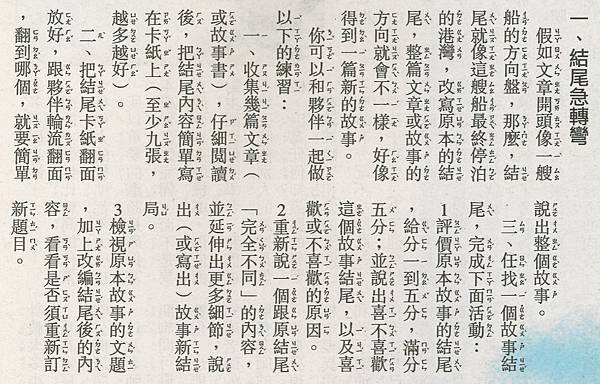 一、結尾急轉彎
假如文章開頭像一艘
船的方向盤，那麼，結
尾就像這艘船最終停泊
的港灣，改寫原本的結
尾，整篇文章或故事的
方向就會不一樣，好像
得到一篇新的故事。
你可以和夥伴一起做
以下的練習：
一、收集幾篇文章（
或故事書），仔細閱讀
後，把結尾內容簡單寫
在卡紙上（至少九張，
越多越好）。
二、把結尾卡紙翻面
放好，跟夥伴輪流翻面
，翻到哪個，就要簡單
說出整個故事。
三、任找一個故事結
尾，完成下面活動：
1評價原本故事的結尾
，給分一到五分，滿分
五分；並說出喜不喜歡
這個故事結尾，以及喜
歡或不喜歡的原因。
2重新說一個跟原結尾
「完全不同」的內容，
並延伸出更多細節，說
出（或寫出）故事新結
局。
3檢視原本故事的文題
，加上改編結尾後的內
容，看看是否須重新訂
新題目。